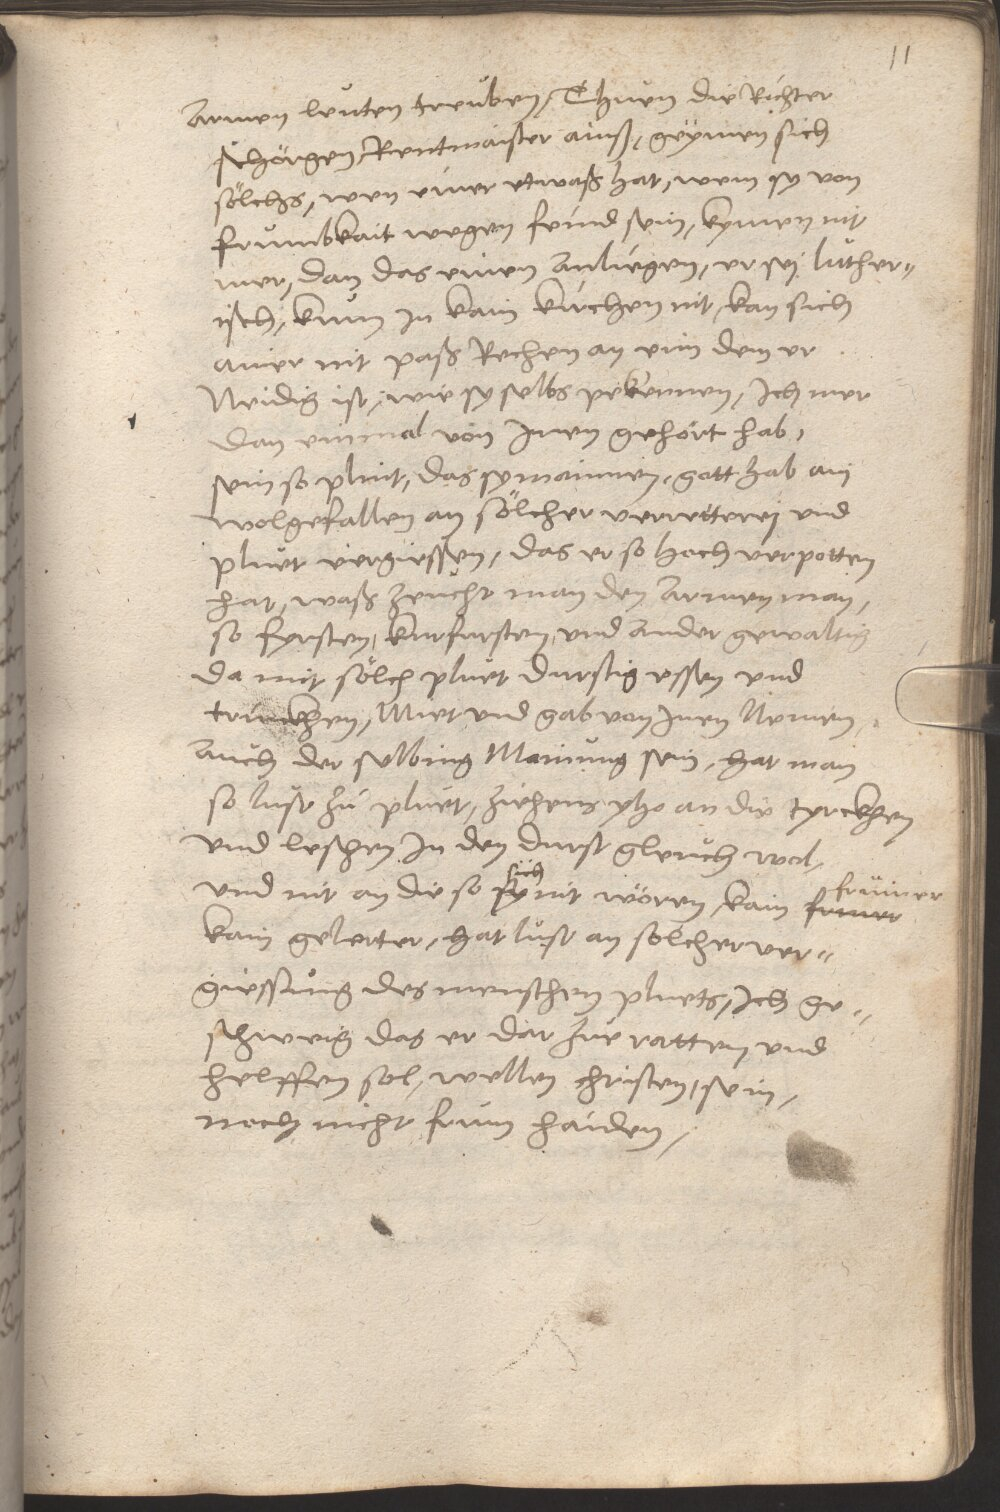 11
Armen leuten treuben, Thuen die Richter
schörgen, Rentmaister auß, geymen sich
sölchs, wen einer etwaß hat, wem sy von
frumbkait wegen feind sein, kymen nit
mer, dan das einen Anliegen, er sej luther=
isch, kum In kain kirchen nit, kan sich
ainer nit paß Rechen an eim dem er
Neidig ist, wie sy selbs pekennen, Ich mer
dan einmal von Inen gehört hab,
sein so plint, das sy mainnen, gott hab ain
wolgefallen an sölcher verretterej und
pluet vergiessen, das er so hoch verpotten
hat, waß zeucht man den Armen man,
so fyrsten, kurfursten, und ander gewaltig
da mit sölch pluet durstig essen und
trinckhen, Miet und gab von Inen Nemen,
Auch der selbing Mainung sein, hat man
so lust zu pluet, ziehens yho an die tyrckhen
und leschen In den durst gleich wol,
und nit an die so sy sich nit wören, kain frumer frumer
kain gelerter, hat lust an solcher ver=
giessung des menschen pluets, Ich ge=
schweig das er dar zue ratten und
helffen sol, wellen christen sein,
noch nicht frum haiden,